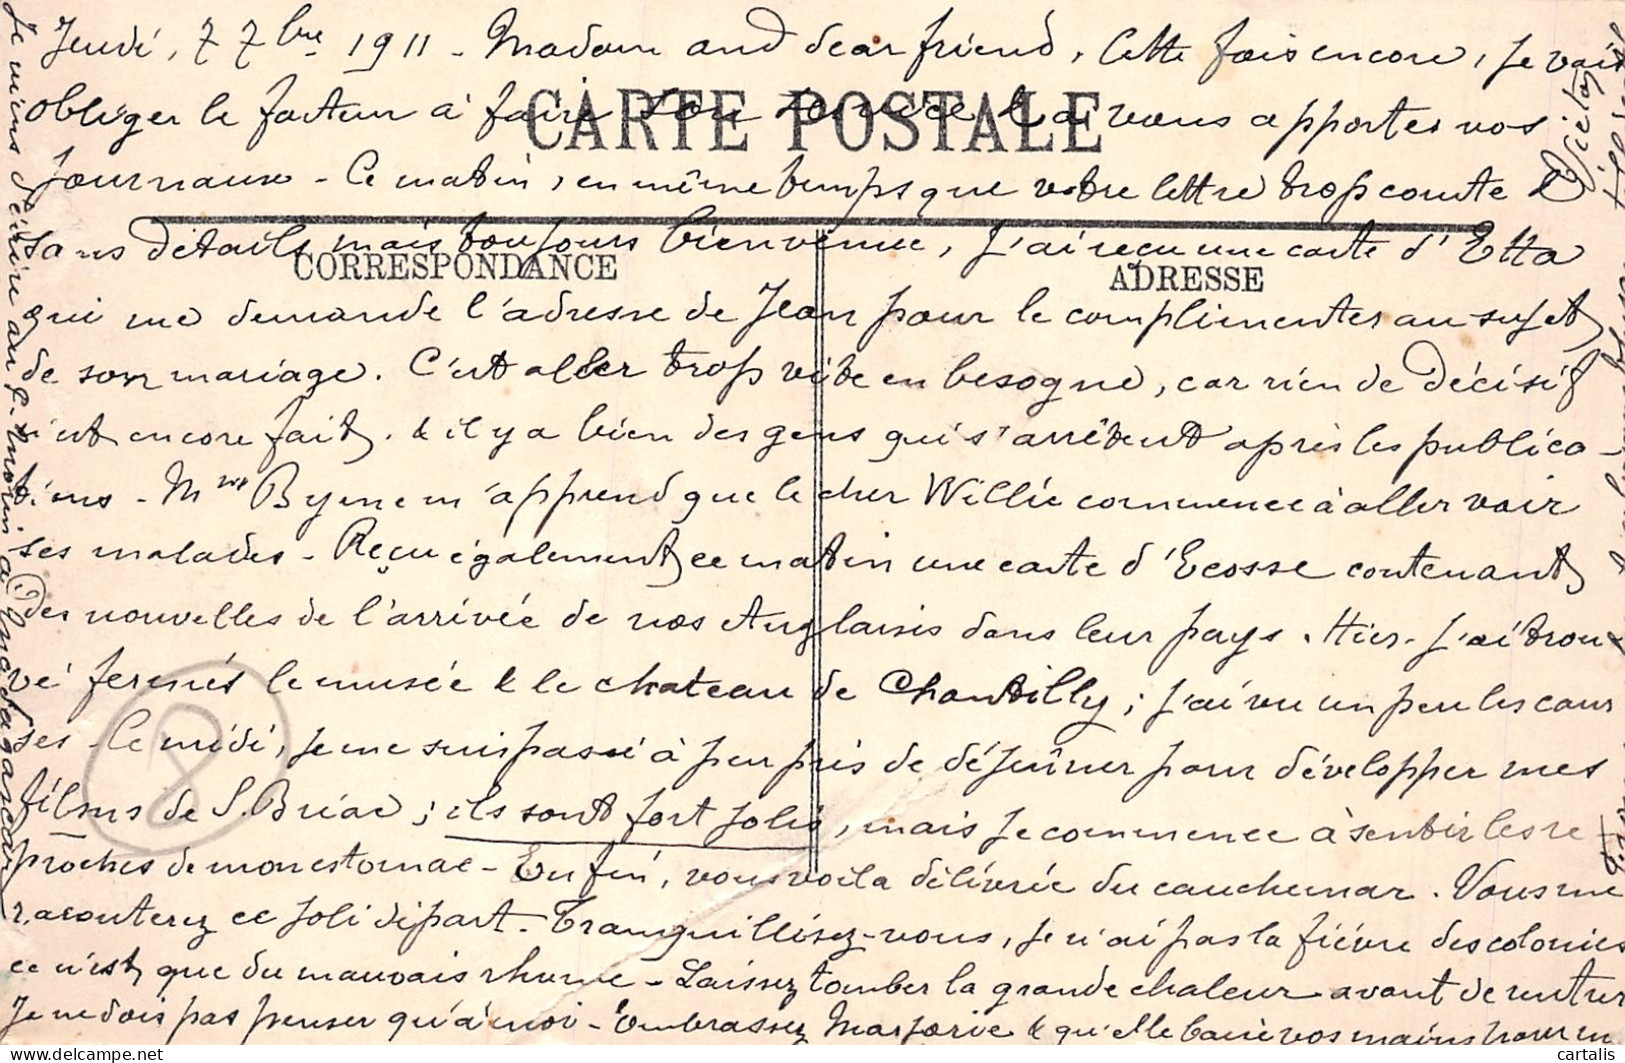 Jeudi, 7 7bre 1911 - Madam and dear friend, Cette fois encore, je vais
obliger le facteur à faire son service & à vous apporter vos
CARTE POSTALE
journaux - Ce matin, en même temps que votre lettre trop courte &
sans détails mais toujours bienvenue, j'ai reçu une carte d'Etta
CORRESPONDANCE
ADRESSE
qui me demande l'adresse de Jean pour le complimenter au sujet
de son mariage. C'est aller trop vite en besogne, car rien de décisif
n'est encore fait, & il y a bien des gens qui s'arrêtent après les publica-
tions - Mme Byrne m'apprend que le cher Willie commence à aller voir
ses malades - Reçu également ce matin une carte d'Ecosse contenant
des nouvelles de l'arrivée de nos Anglaises dans leur pays. Hier j'ai trou-
vé fermés le musée & le chateau de Chantilly ; j'ai vu un peu les cour
ses - Ce midi, je me suis passé à peu près de déjeûner pour développer mes
films de S. Briac ; ils sont fort jolis, mais je commence à sentir les re
proches de mon estomac - Enfin, vous voilà délivrée du cauchemar. Vous me
raconterez ce joli départ - Tranquillisez-vous, je n'ai pas la fièvre des colonies
ce n'est que du mauvais rhume - Laissez tomber la grande chaleur avant de rentrer
Je ne dois pas penser qu'à moi - Embrassez Marjorie & qu'elle baise vos mains pour m
Je viens d'écrire au à Madagascar
Victor
8
cartalis